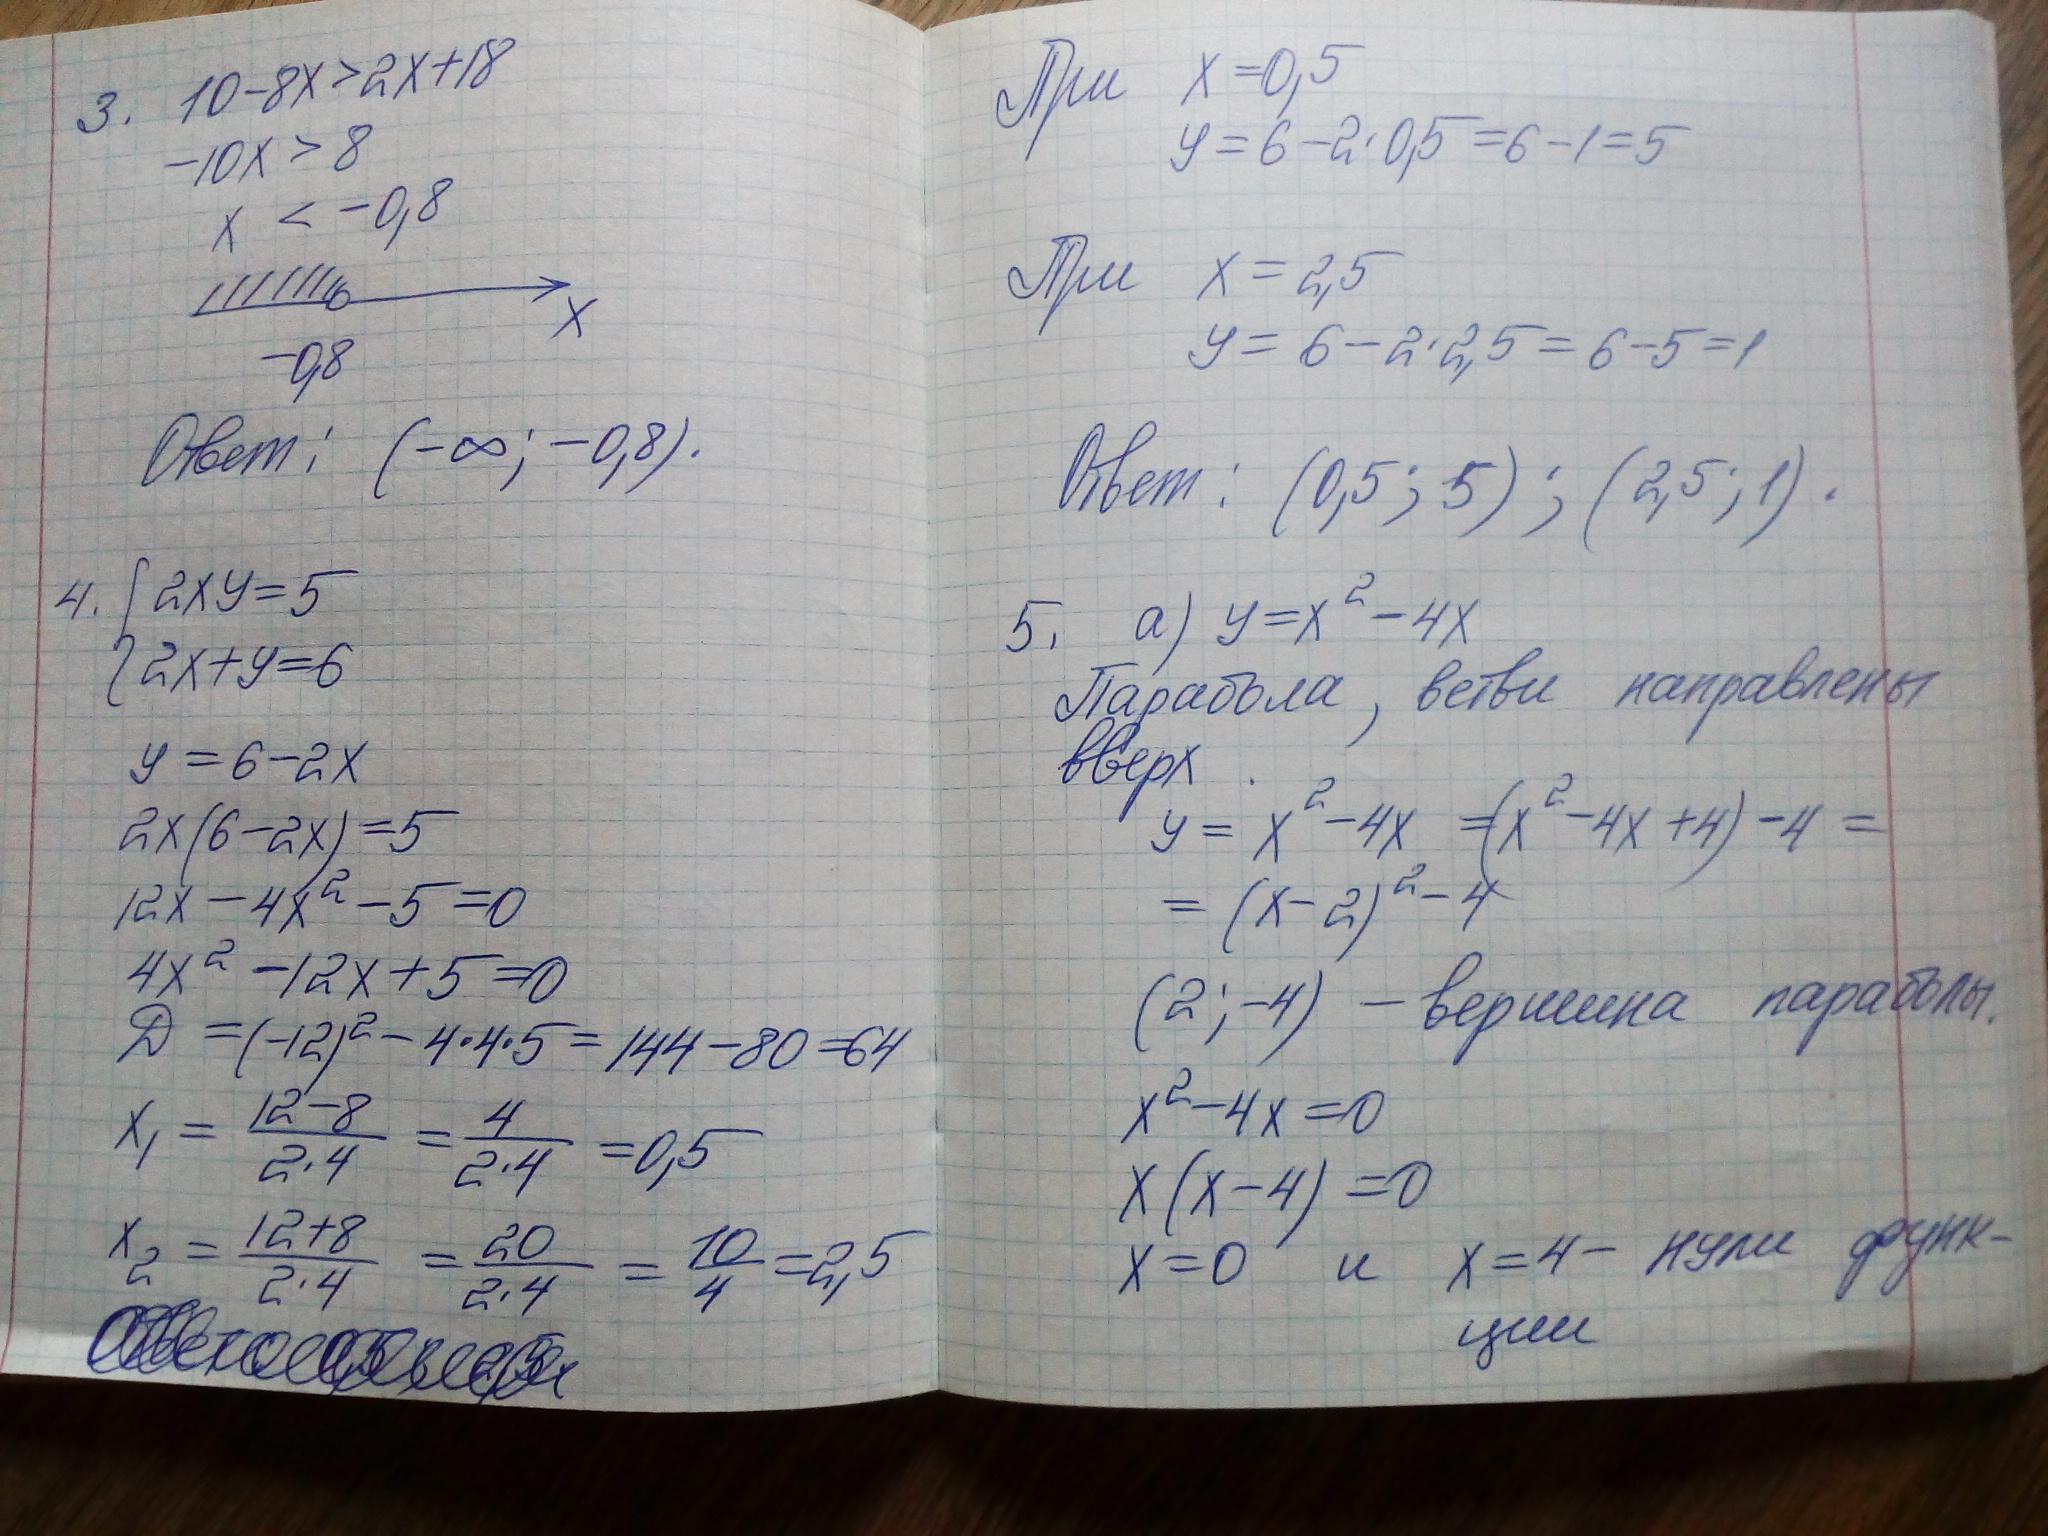 3. 10-8x>2x+18
-10x>8
x < -0,8
x
-0,8
Ответ: (-∞; -0,8).
4. {2xy=5
{2x+y=6
y=6-2x
2x(6-2x)=5
12x-4x²-5=0
4x²-12x+5=0
D=(-12)²-4·4·5=144-80=64
x₁ = 12-8/2·4 = 4/2·4 =0,5
x₂ = 12+8/2·4 = 20/2·4 = 10/4 =2,5
При x=0,5
y=6-2·0,5=6-1=5
При x=2,5
y=6-2·2,5=6-5=1
Ответ: (0,5; 5); (2,5; 1).
5. а) y=x²-4x
Парабола, ветви направлены
вверх.
y= x²-4x =(x²-4x+4)-4=
=(x-2)²-4
(2; -4) - вершина параболы.
x²-4x=0
x(x-4)=0
x=0 и x=4- нули функ-
ции